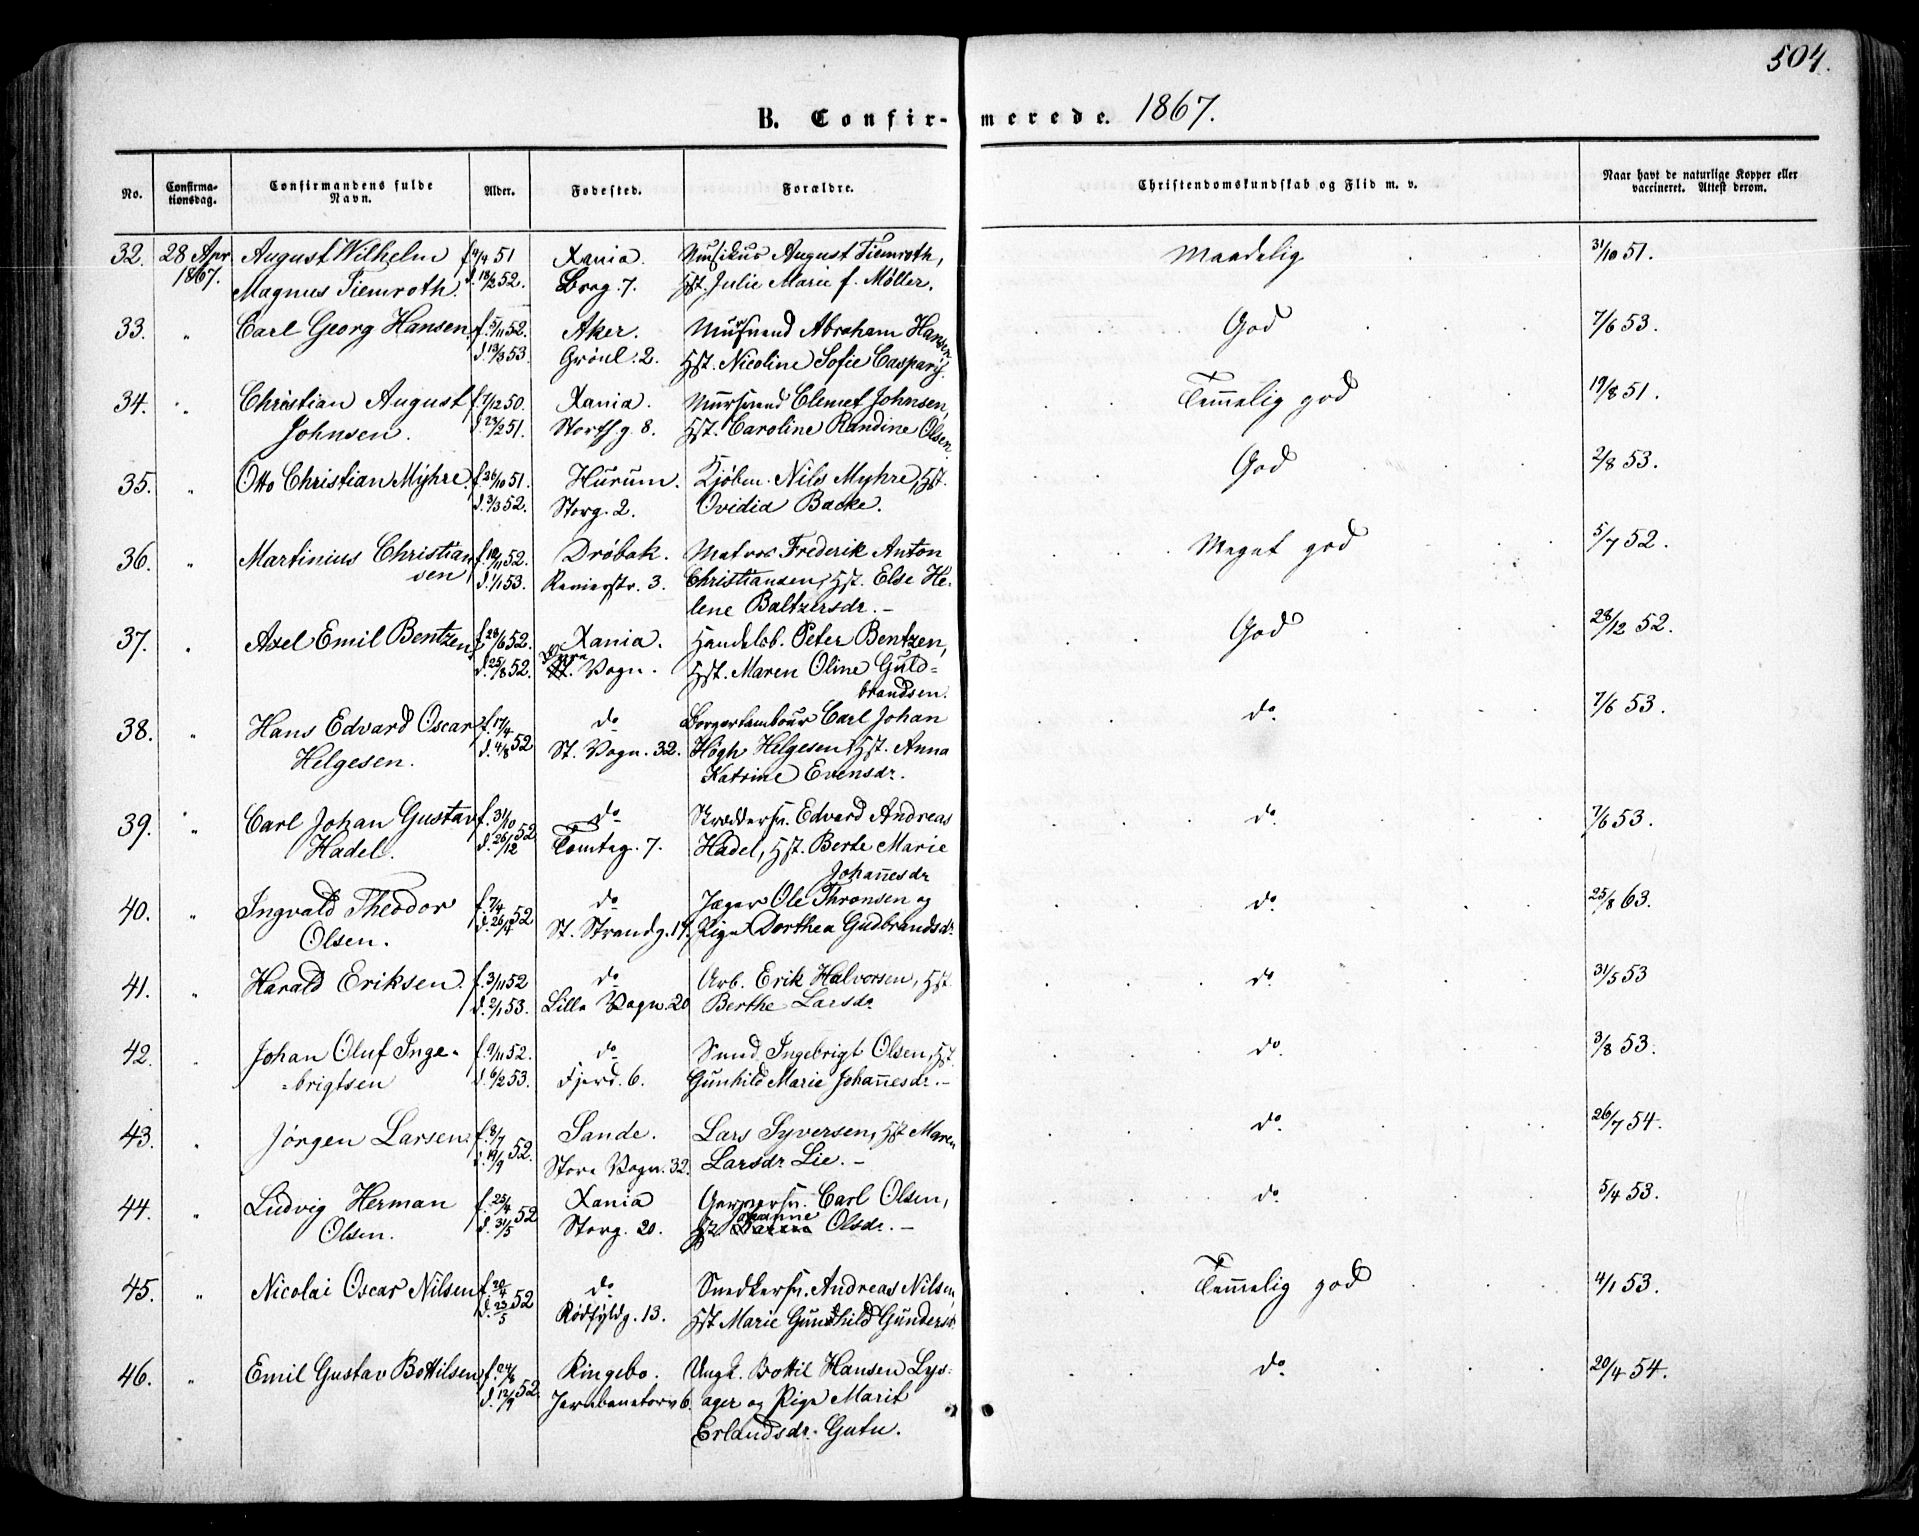 504.
B. Confirmerede. 1867.
No. Confirmationsdag. Confirmandens fulde Navn. Alder. Fødested. Forældre. Christendomskundskab og Flid m. v. Naar havt de naturlige Kopper eller vaccineret. Attest derom.
32. 28 Apr August Wilhelm 51 Xania. Musikus August Tiemroth, Maadelig 31/10 51.
1867. Magnus Tiemroth. d. 18/2 52. Borg. 7. Hst. Julie Marie f. Møller.
33. " Carl Georg Hansen, f. 5/11 52. Aker. Mursvend Abraham Hansen, God 7/6 53.
d. 13/3 53. Grönl. 2. Hst. Nicoline Sofie Casparis.
34. " Christian August f. 7/12 50. Xania. Mursvend Clemet Johnsen, Temmelig god 19/8 51.
Johnsen. d. 23/2 51. Storth.g. 8. Hst. Caroline Randine Olsen.
35. " Otto Christian Myhre. f. 26/10 51. Hurum. Kjøbm. Nils Myhre, Hst. God 2/8 53.
d. 3/3 52. Storg. 2. Ovidia Backe.
36. " Martinius Christian f. 18/11 52. Drøbak. Matros Frederik Anton Meget god 5/7 52.
sen d. 1/1 53. Revierstr. 3. Christiansen, Hst. Else He-
lene Baltzersdr. -
37. " Axel Emil Bentzen, f. 28/6 52. Xania. Handelsb. Peter Bentzen, God 28/12 52.
d. 25/8 52. St. Vogn. Hst. Maren Oline Guld-
brandsen.
38. " Hans Edvard Oscar f. 17/4 do Borgertambour Carl Johan do 7/6 53.
Helgesen. d. 4/8 52 St. Vogn. 32. Høgh Helgesen, Hst. Anna
Katrine Evensdr.
39. " Carl Johan Gustav f. 31/10 do Skreddersv. Edvard Andreas do 7/6 53.
Hadel. d. 26/12 52 Tomteg. 7. Hadel, Hst. Berte Marie
Johannesdr
40. " Ingvald Theodor f. 7/4 do Jæger Ole Thronsen og do 25/8 63.
Olsen. d. 26/4 52 St. Strandg. 19. Pige Dorthea Gudbrandsdr
41. " Harald Eriksen. f. 3/11 52 do Arb. Erik Halvorsen, Hst. do 31/5 53
d. 2/1 53. Lille Vogn. 20 Berthe Larsdr
42. " Johan Oluf Inge- f. 9/11 52. do Smed Ingebrigt Olsen, Hst. do 3/8 53.
-brigtsen d. 6/2 53. Fjerd. 6. Gunhild Marie Johannesdr. -
43. " Jørgen Larsen. f. 8/7 Sande. Lars Syversen, Hst Maren do 26/7 54.
d. 19/9 52. Store Vogn. 32. Larsdr Lie. -
44. " Ludvig Herman f. 25/4 Xania Garversv. Carl Olsen, do 5/4 53.
Olsen. d. 31/5 52 Storg. 20. Hst Johanne Olsdr. -
45. " Nicolai Oscar Nilsen f. 20/4 do Snedkersv. Andreas Nilsen, Temmelig god 4/1 53.
d. 23/5 52 Rødfyldg. 13. Hst Marie Gunhild Gundersdr
46. " Emil Gustav Bottilsen f. 24/6 Ringebo. Ungk. Bottil Hansen Lys- do 20/4 54.
d. 12/9 52. Jernbanetorv 6. ager og Pige Marit
Erlandsdr. Gutu.